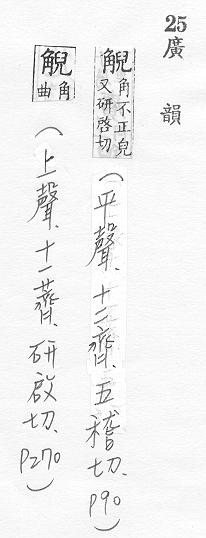 25 廣韻
觬 角不正兒又研啓切 (平聲、十二齊、五稽切、p90)
觬 角曲 (上聲、十一薺、研啟切、p270)